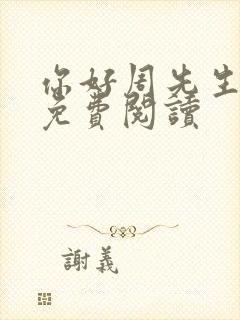 你好周先生
免費閱讀
謝義